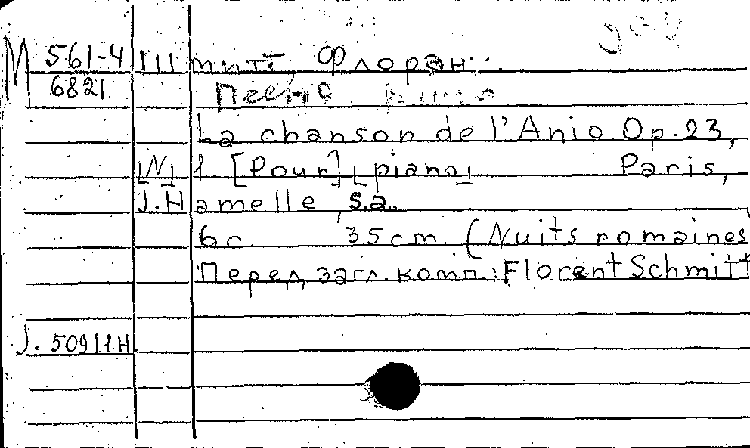 М 561-4 Шмитт, Флоран.
6821
La chanson de l'Anio Op. 23,
N 1 [Pour] piano Paris,
J. Hamelle, s.a.
6 c 35 cm (Nuits romaines
Перед загл. комп.: Florent Schmitt
J. 50911н